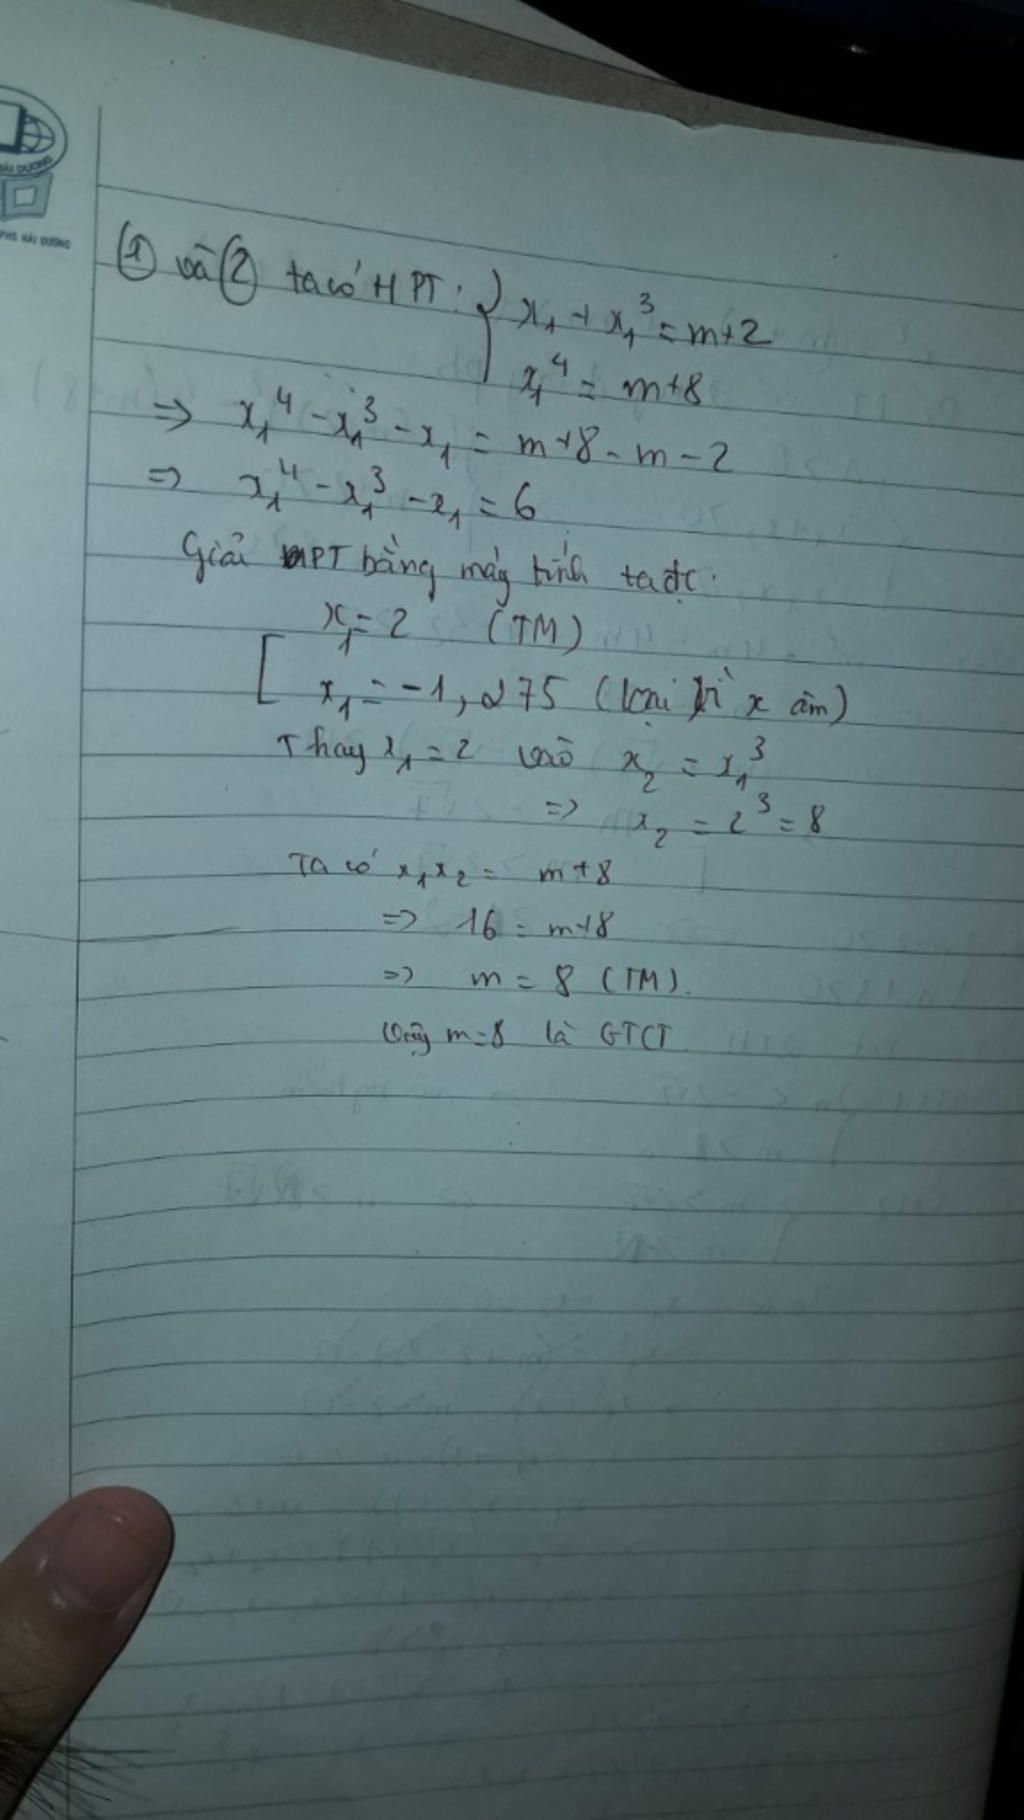 HẢI DƯƠNG
PHS HẢI DƯƠNG
① và ② ta có HPT: { x₁ + x₁³ = m+2
x₁⁴ = m+8
=> x₁⁴ - x₁³ - x₁ = m+8 - m - 2
=> x₁⁴ - x₁³ - x₁ = 6
Giải PT bằng máy tính ta đc:
[ x₁ = 2 (TM)
x₁ = -1,275 (loại vì x âm)
Thay x₁ = 2 vào x₂ = x₁³
=> x₂ = 2³ = 8
Ta có x₁x₂ = m+8
=> 16 = m+8
=> m = 8 (TM).
Vậy m=8 là GTCT